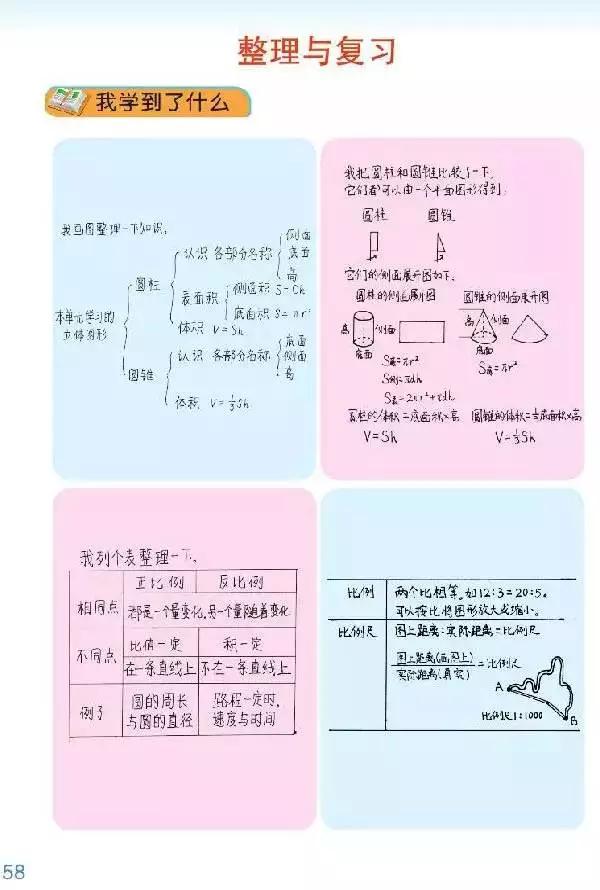 整理与复习
我学到了什么
我画图整理一下知识。
本单元学习的
立体图形
圆柱
认识 各部分名称
侧面
底面
高
表面积
侧面积 S=Ch
底面积 S=πr²
体积 V=Sh
圆锥
认识 各部分名称
底面
侧面
高
体积 V=⅓Sh
我把圆柱和圆锥比较了一下,
它们都可以由一个平面图形得到。
圆柱 圆锥
它们的侧面展开图如下。
圆柱的侧面展开图 圆锥的侧面展开图
高 侧面 高 侧面
底面 底面
S底=πr² S底=πr²
S侧=πdh
S表=2πr²+πdh
圆柱的体积=底面积×高 圆锥的体积=⅓底面积×高
V=Sh V=⅓Sh
我列个表整理一下。
正比例 反比例
相同点 都是一个量变化,另一个量随着变化
不同点 比值一定 积一定
在一条直线上 不在一条直线上
例子 圆的周长 路程一定时,
与圆的直径 速度与时间
比例 两个比相等。如12:3=20:5。
可以按比将图形放大或缩小。
比例尺 图上距离:实际距离=比例尺
图上距离(画图上)
实际距离(真实)
=比例尺
A
B
比例尺1:1000
58